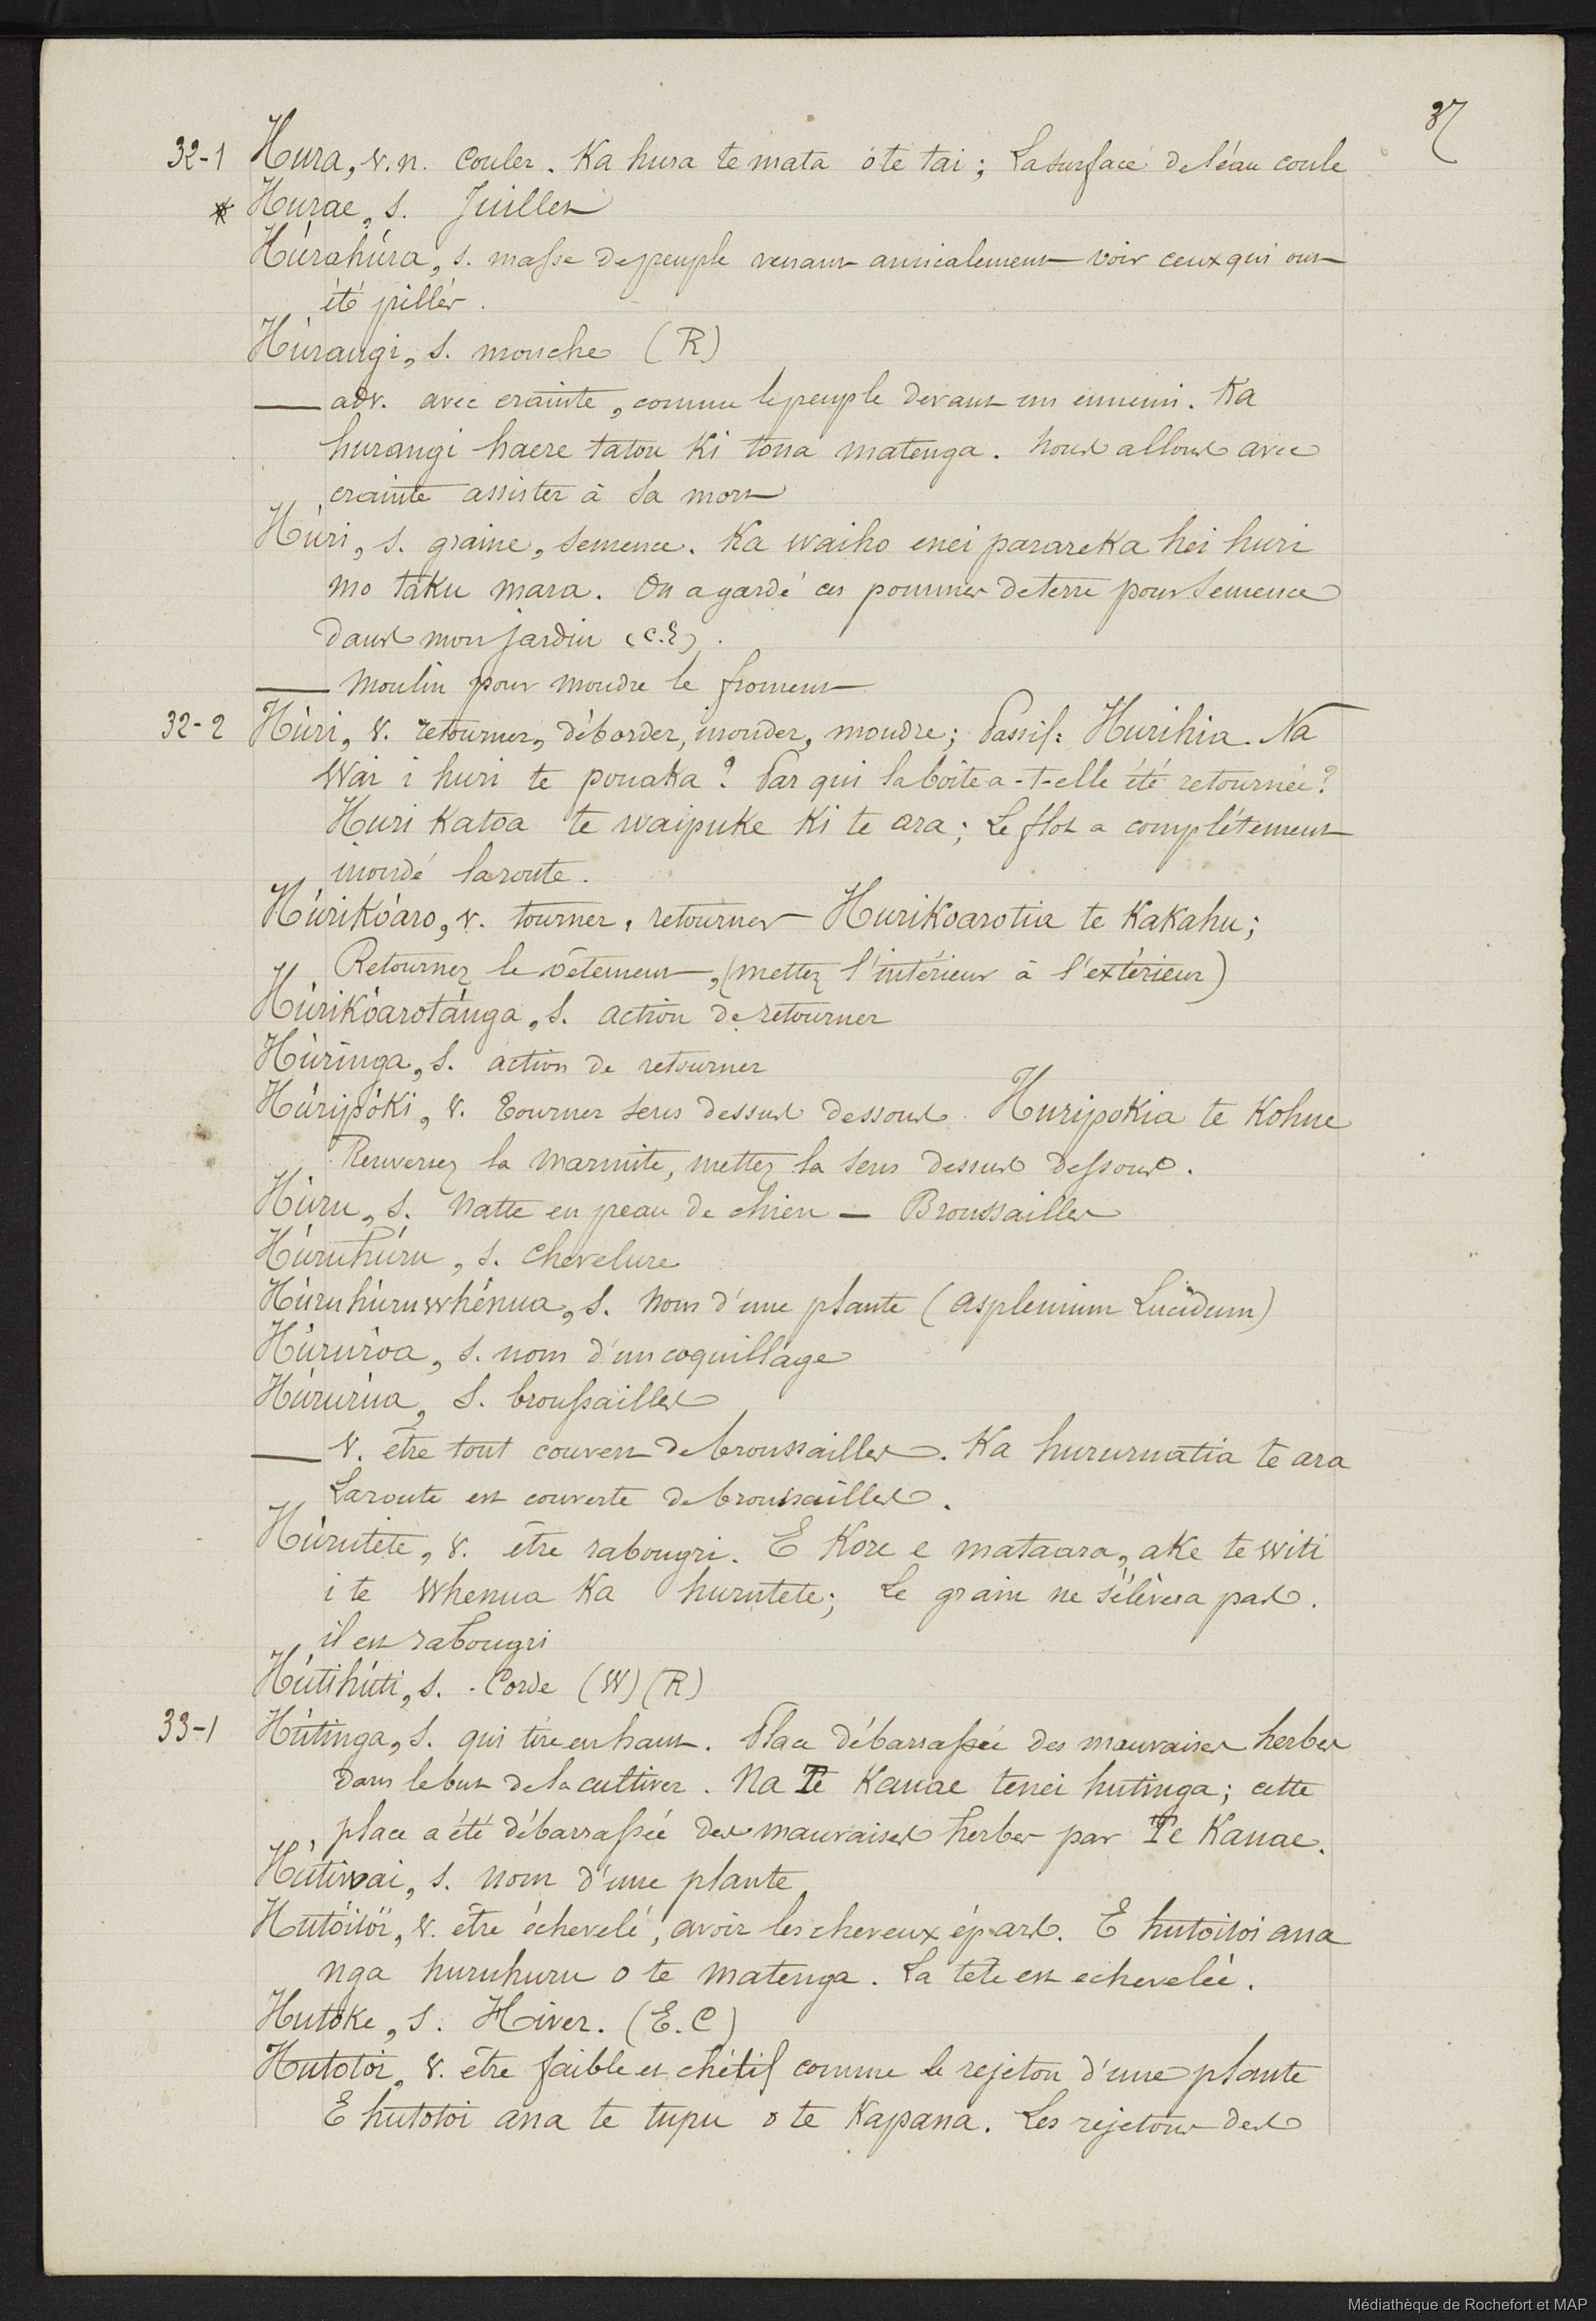 37
32-1 Hura, v. n. Couler. Ka hura te mata o te tai; La surface de l'éau coule
* Hurae, s. Juillet
Húrahúra, s. masse de peuple venant amicalement voir ceux qui ont
été pillés.
Húrangi, s. mouche (R)
— adv. avec crainte, comme le peuple devant un ennemi. Ka
hurangi haere tatou ki tona matenga. nous allons avec
crainte assister à sa mort
Húri, s. graine, semence. Ka waiho enei parareka hei huri
mo taku mara. On a gardé ces pommes de terre pour semence
dans mon jardin (C.E).
— Moulin pour moudre le froment
32-2 Húri, v. retourner, déborder, inonder, moudre; Passif: Hurihia. Na
Wai i huri te pouaka? Par qui la boîte a-t-elle été retournée?
Huri katoa te waipuke ki te ara; Le flot a complétement
inondé la route.
Húrikóaro, v. tourner, retourner — Hurikoarotia te Kakahu;
Retournez le vêtement, (mettez l'intérieur à l'extérieur)
Húrikóarotánga, s. action de retourner
Húringa, s. action de retourner
Húripóki, v. Tourner sens dessus dessous. Huripokia te Kohue
Renversez la marmite, mettez la sens dessus dessous.
Húru, s. Natte en peau de chien — Broussailles
Húruhúru, s. Chevelure
Húruhúruwhénua, s. Nom d'une plante (Asplenium Lucidum)
Húruróa, s. nom d'un coquillage
Húrurúa, s. broussailles
— v. être tout couvert de broussailles. Ka hururuatia te ara
La route est couverte de broussailles.
Húrutete, v. être rabougri. E Kore e mataara, ake te witi
i te Whenua Ka hurutete; Le grain ne s'élèvera pas.
il est rabougri
Hútihúti, s. Corde (W) (R)
33-1 Hútinga, s. qui tire en haut. Place débarrassée des mauvaises herbes
dans le but de la cultiver. Na Te Kanae tenei hutinga; cette
place a été débarrassée des mauvaises herbes par Te Kanae.
Hútiwai, s. Nom d'une plante
Hutóitoi, v. être échevelé, avoir les cheveux épars. E hutoitoi ana
nga huruhuru o te matenga. La tête est echevelée.
Hutoke, s. Hiver. (E. C)
Hutotoi, v. être faible et chétif comme le rejeton d'une plante
E hutotoi ana te tupu o te Kapana. Les rejetons des
Médiathèque de Rochefort et MAP